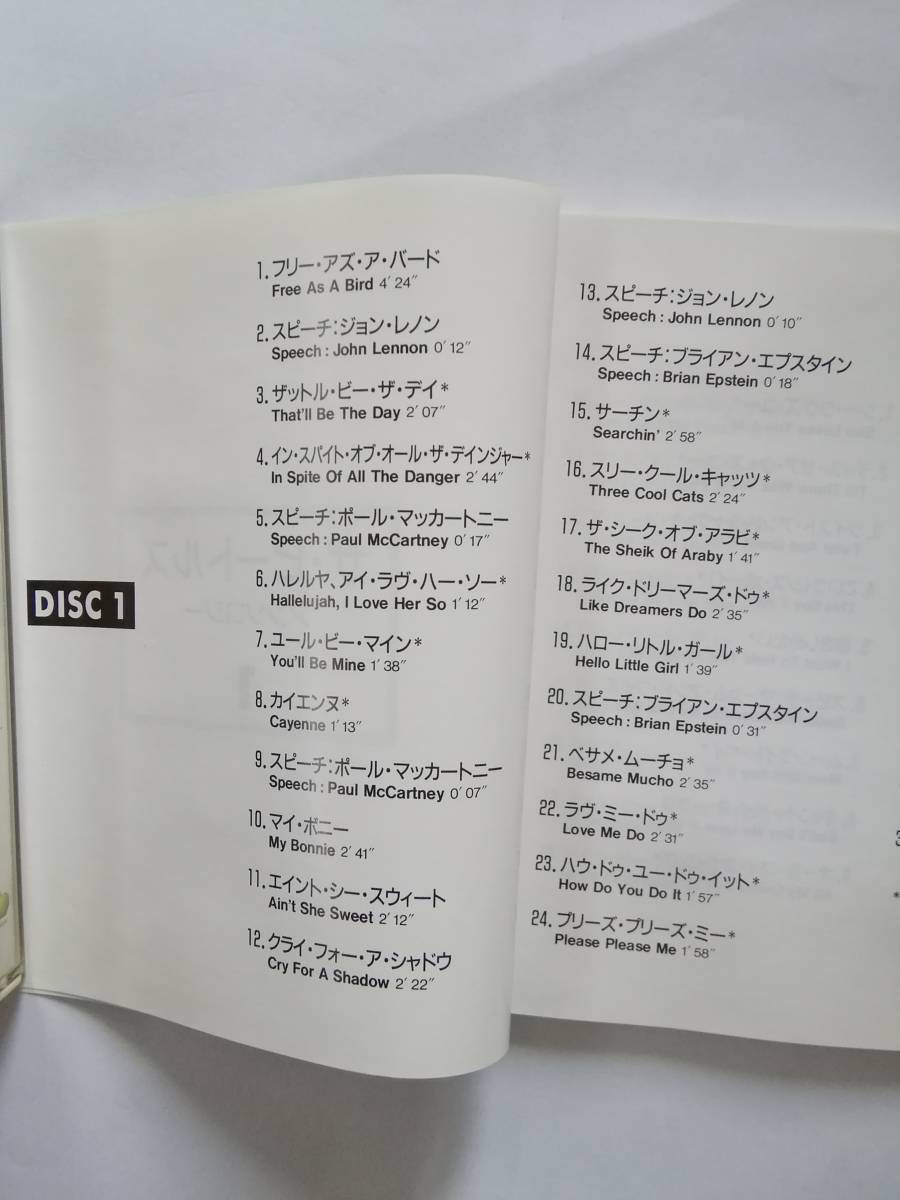 DISC 1
1. フリー・アズ・ア・バード
Free As A Bird 4′24″
2. スピーチ:ジョン・レノン
Speech : John Lennon 0′12″
3. ザットル・ビー・ザ・デイ*
That'll Be The Day 2′07″
4. イン・スパイト・オブ・オール・ザ・デインジャー*
In Spite Of All The Danger 2′44″
5. スピーチ:ポール・マッカートニー
Speech : Paul McCartney 0′17″
6. ハレルヤ、アイ・ラヴ・ハー・ソー*
Hallelujah, I Love Her So 1′12″
7. ユール・ビー・マイン*
You'll Be Mine 1′38″
8. カイエンヌ*
Cayenne 1′13″
9. スピーチ:ポール・マッカートニー
Speech : Paul McCartney 0′07″
10. マイ・ボニー
My Bonnie 2′41″
11. エイント・シー・スウィート
Ain't She Sweet 2′12″
12. クライ・フォー・ア・シャドウ
Cry For A Shadow 2′22″
13. スピーチ:ジョン・レノン
Speech : John Lennon 0′10″
14. スピーチ:ブライアン・エプスタイン
Speech : Brian Epstein 0′18″
15. サーチン*
Searchin' 2′58″
16. スリー・クール・キャッツ*
Three Cool Cats 2′24″
17. ザ・シーク・オブ・アラビ*
The Sheik Of Araby 1′41″
18. ライク・ドリーマーズ・ドゥ*
Like Dreamers Do 2′35″
19. ハロー・リトル・ガール*
Hello Little Girl 1′39″
20. スピーチ:ブライアン・エプスタイン
Speech : Brian Epstein 0′31″
21. ベサメ・ムーチョ*
Besame Mucho 2′35″
22. ラヴ・ミー・ドゥ*
Love Me Do 2′31″
23. ハウ・ドゥ・ユー・ドゥ・イット*
How Do You Do It 1′57″
24. プリーズ・プリーズ・ミー*
Please Please Me 1′58″